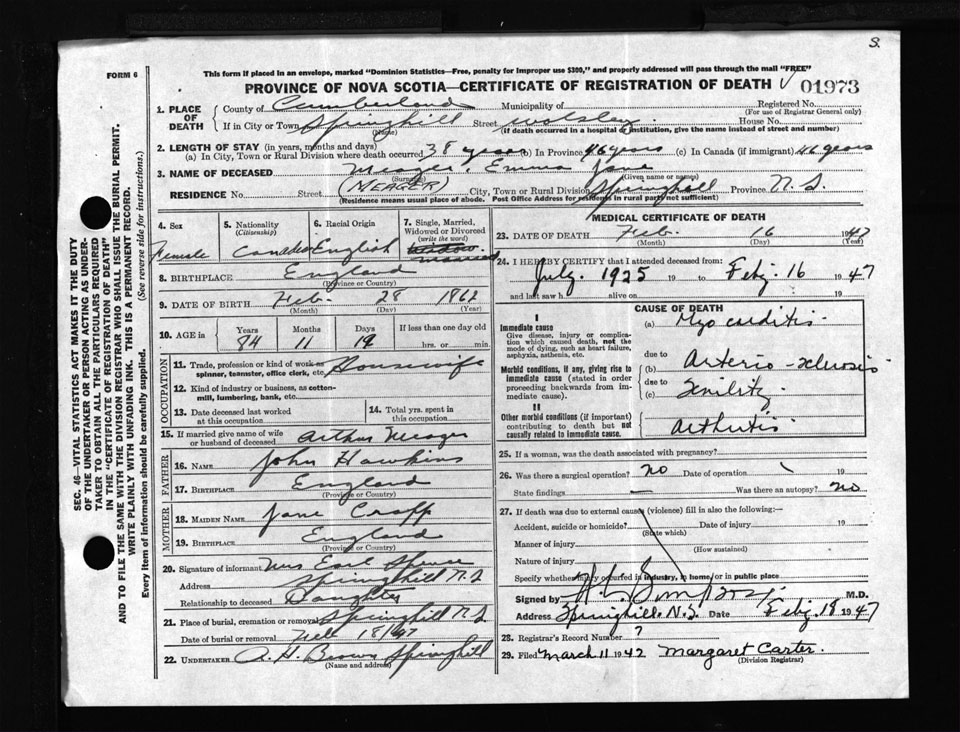 S.
FORM 6
This form if placed in an envelope, marked "Dominion Statistics—Free, penalty for improper use $300," and properly addressed will pass through the mail "FREE"
PROVINCE OF NOVA SCOTIA—CERTIFICATE OF REGISTRATION OF DEATH 01973
SEC. 46—VITAL STATISTICS ACT MAKES IT THE DUTY
OF THE UNDERTAKER OR PERSON ACTING AS UNDER-
TAKER TO OBTAIN ALL THE PARTICULARS REQUIRED
IN THE "CERTIFICATE OF REGISTRATION OF DEATH"
AND TO FILE THE SAME WITH THE DIVISION REGISTRAR WHO SHALL ISSUE THE BURIAL PERMIT.
WRITE PLAINLY WITH UNFADING INK. THIS IS A PERMANENT RECORD.
Every item of information should be carefully supplied. (See reverse side for instructions.)
1. PLACE OF DEATH
County of Cumberland Municipality of Registered No.
(For use of Registrar General only)
If in City or Town Springhill Street House No.
(Name) (If death occurred in a hospital or institution, give the name instead of street and number)
2. LENGTH OF STAY (in years, months and days)
(a) In City, Town or Rural Division where death occurred 38 years (b) In Province 46 years (c) In Canada (if immigrant) 46 years
3. NAME OF DECEASED Meager, Emma Jane
(Surname) (Given name or names)
(MEAGER)
RESIDENCE No. Street City, Town or Rural Division Springhill Province N.S.
(Residence means usual place of abode. Post Office Address for residents in rural parts not sufficient)
4. Sex
Female
5. Nationality
(Citizenship)
Canadian
6. Racial Origin
English
7. Single, Married,
Widowed or Divorced
(write the word)
widow
married
8. BIRTHPLACE England
(Province or Country)
9. DATE OF BIRTH Feb. 28 1862
(Month) (Day) (Year)
10. AGE in Years Months Days If less than one day old
84 11 19 hrs. or min.
OCCUPATION
11. Trade, profession or kind of work as
spinner, teamster, office clerk, etc. Housewife
12. Kind of industry or business, as cotton-
mill, lumbering, bank, etc.
13. Date deceased last worked
at this occupation
14. Total yrs. spent in
this occupation
15. If married give name of wife
or husband of deceased Arthur Meager
FATHER
16. NAME John Hawkins
17. BIRTHPLACE England
(Province or Country)
MOTHER
18. MAIDEN NAME Jane Cropp
19. BIRTHPLACE England
(Province or Country)
20. Signature of informant Mrs Earl Spence
Address Springhill N.S
Relationship to deceased Daughter
21. Place of burial, cremation or removal Springhill N.S
Date of burial or removal Feb 18/47
22. UNDERTAKER A. H. Brown Springhill
(Name and address)
MEDICAL CERTIFICATE OF DEATH
23. DATE OF DEATH Feb. 16 1947
(Month) (Day) (Year)
24. I HEREBY CERTIFY that I attended deceased from:
July. 1925 19 to Feby. 16 1947
and last saw h alive on 19
CAUSE OF DEATH
I
Immediate cause
Give disease, injury or complica-
tion which caused death, not the
mode of dying, such as heart failure,
asphyxia, asthenia, etc.
(a) Myo carditis.
due to
Morbid conditions, if any, giving rise to
immediate cause (stated in order
proceeding backwards from im-
mediate cause).
(b) Arterio-sclerosis
due to
(c) Senility
II
Other morbid conditions (if important)
contributing to death but not
causally related to immediate cause.
Arthritis
25. If a woman, was the death associated with pregnancy?
26. Was there a surgical operation? no Date of operation 19
State findings — Was there an autopsy? no
27. If death was due to external causes (violence) fill in also the following:—
Accident, suicide or homicide? Date of injury 19
(State which)
Manner of injury
(How sustained)
Nature of injury
Specify whether injury occurred in industry, in home, or in public place
Signed by M.D.
Address Springhill, N.S. Date Feby. 18 1947
28. Registrar's Record Number 7
29. Filed March 11 1942 Margaret Carter.
(Division Registrar)